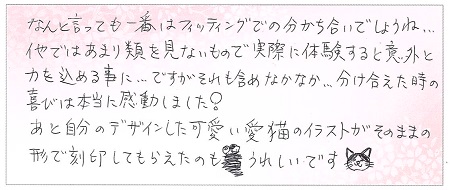 なんと言っても一番はフィッティングでの分かち合いでしょうね…
他ではあまり類を見ないもので実際に体験すると意外と
力を込める事に…ですがそれも含めなかなか…分け合えた時の
喜びは本当に感動しました!
あと自分のデザインした可愛い愛猫のイラストがそのままの
形で刻印してもらえたのもうれしいです